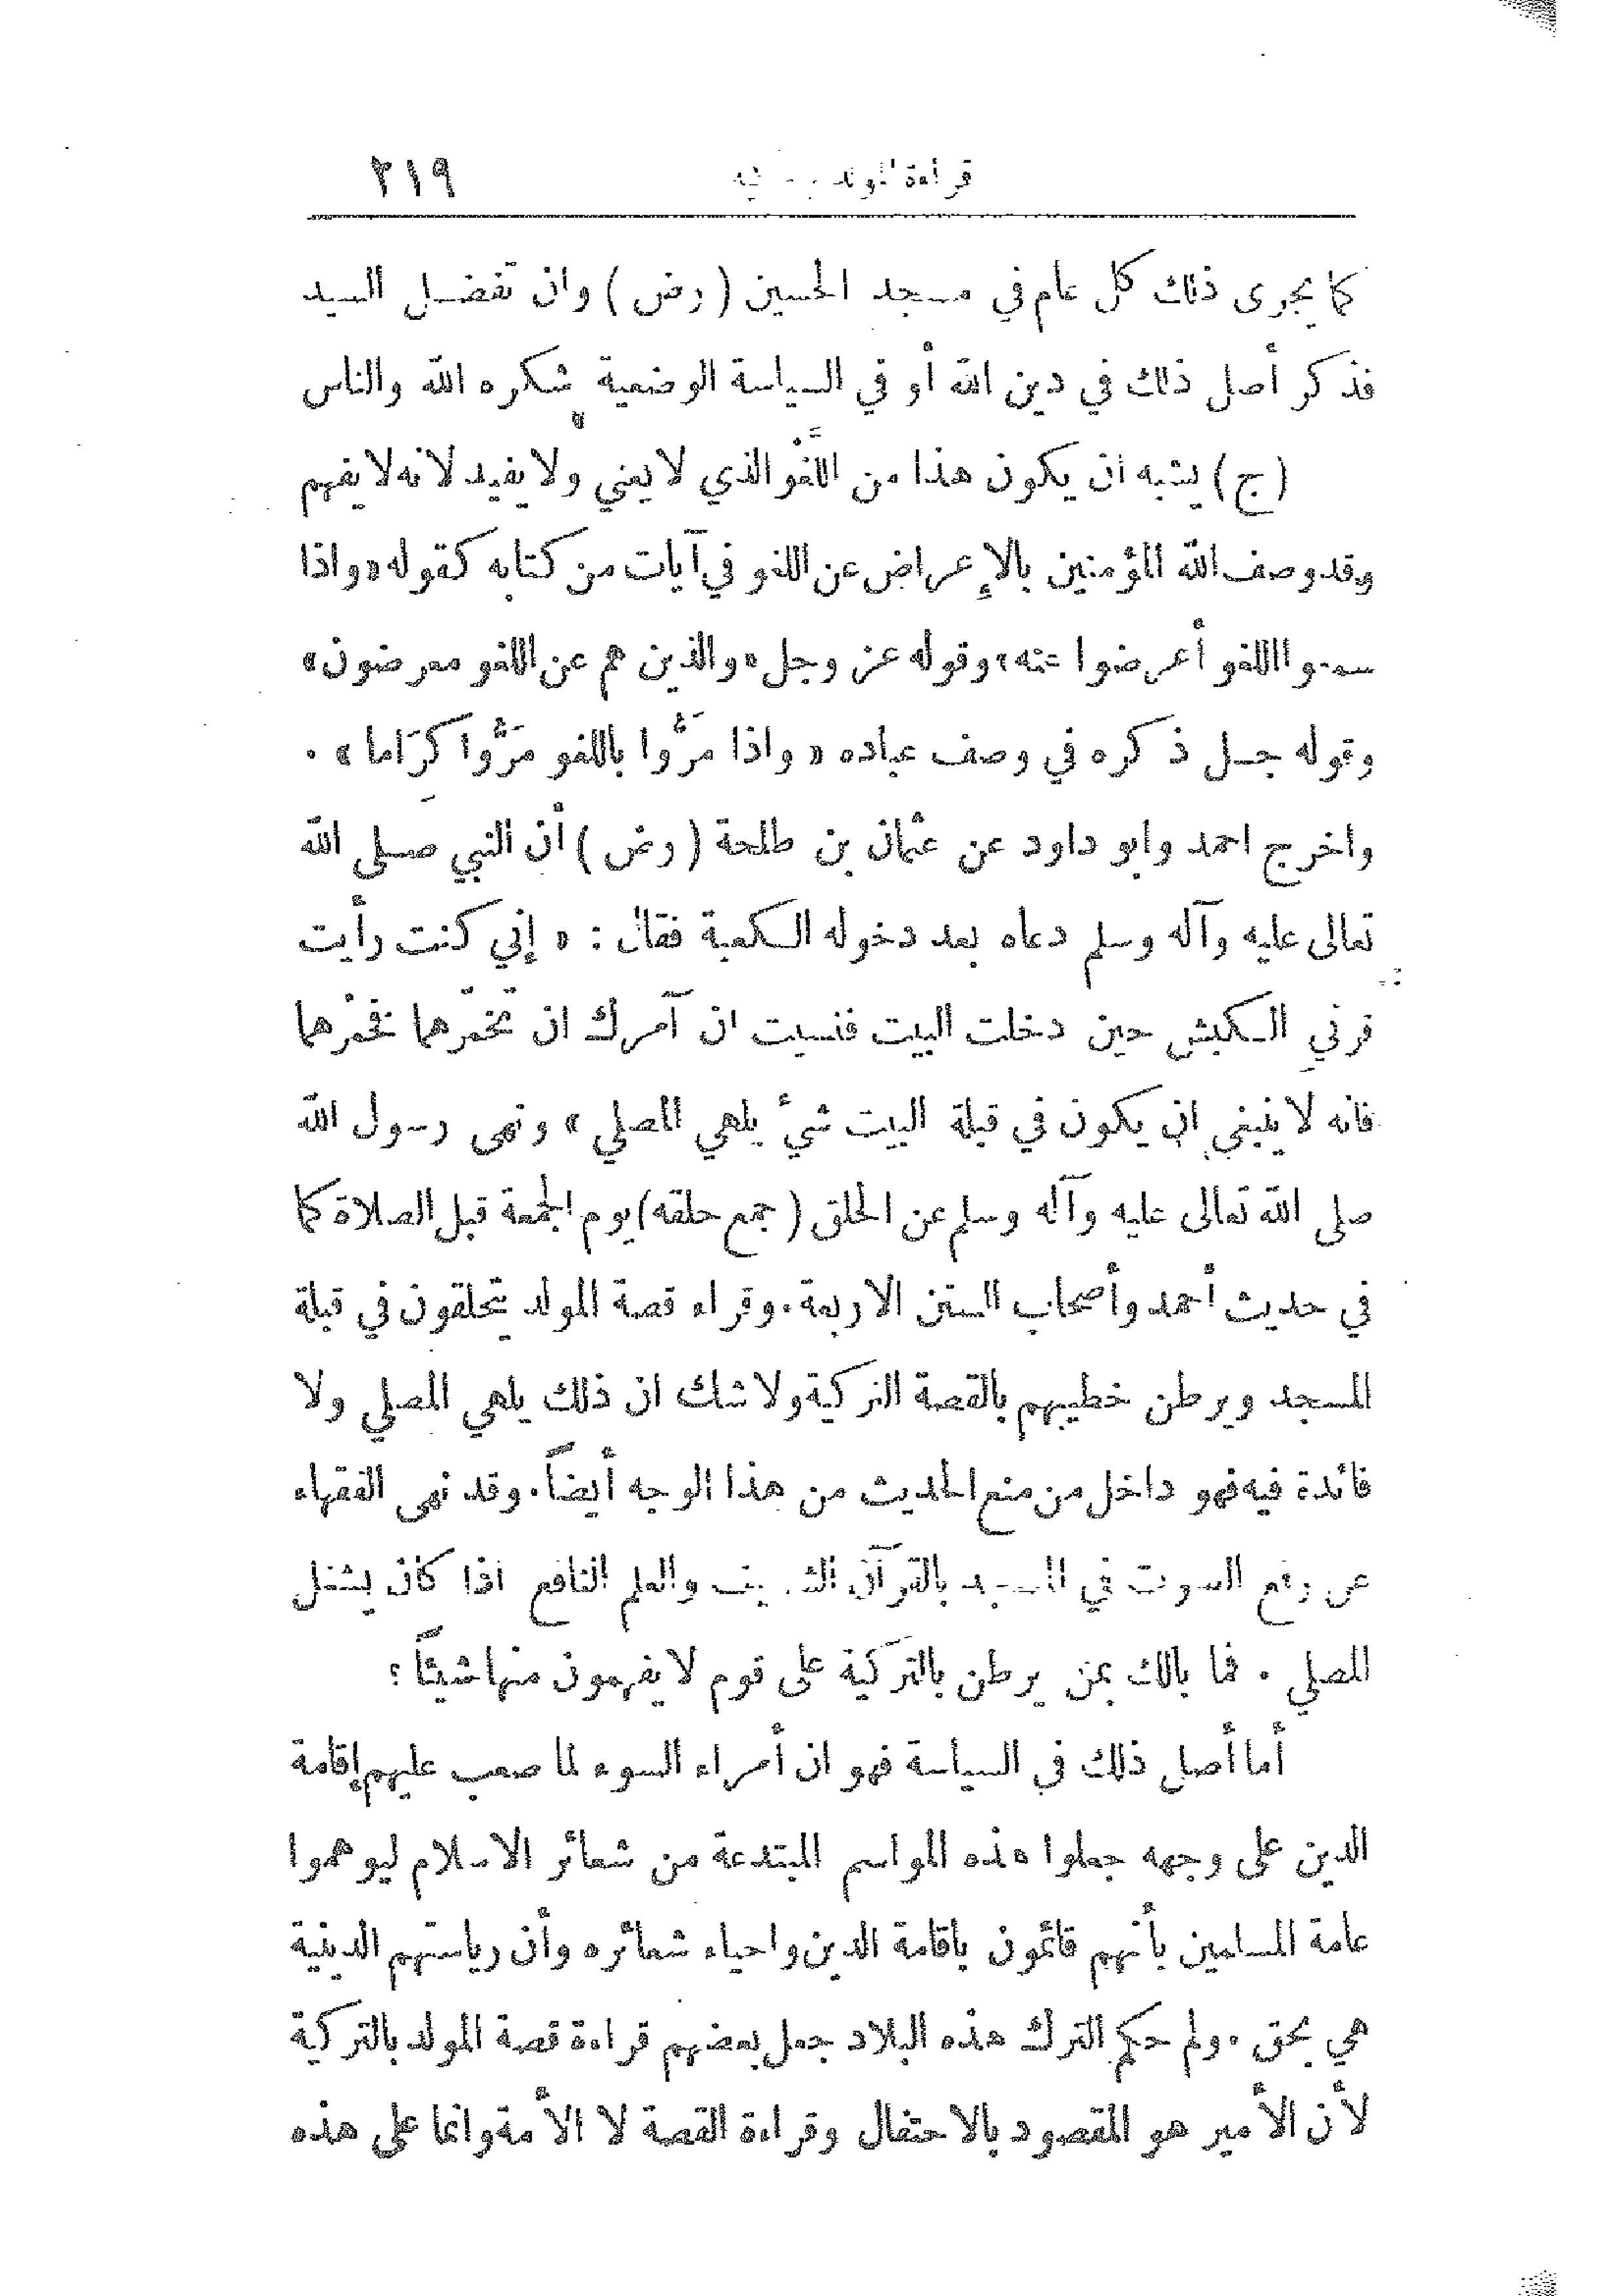 قراءة ٢١٩
كما يجرى ذلك كل عام في مسجد الحسين (رض) وان تفضل السيد
فذكر أصل ذلك في دين الله أو في السياسة الوضعية يشكره الله والناس
(ج) يشبه ان يكون هذا من اللَّغْو الذي لا يعني ولا يفيد لانه لا يفهم
وقد وصف الله المؤمنين بالإعراض عن اللغو في آيات من كتابه كقوله «واذا
سمعوا اللغو أعرضوا عنه» وقوله عز وجل «والذين هم عن اللغو معرضون»
وقوله جل ذكره في وصف عباده « واذا مَرُّوا باللغو مَرُّوا كِرَاما» .
واخرج احمد وابو داود عن عثمان بن طلحة (رض) أن النبي صلى الله
تعالى عليه وآله وسلم دعاه بعد دخوله الكعبة فقال : « إني كنت رأيت
قرني الكبش حين دخلت البيت فنسيت ان آمرك ان تخمّرهما فخمّرهما
فانه لا ينبغي ان يكون في قبلة البيت شيء يلهي المصلي» ونهى رسول الله
صلى الله تعالى عليه وآله وسلم عن الحلق (جمع حلقه) يوم الجمعة قبل الصلاة كما
في حديث أحمد وأصحاب السنن الاربعة. وقراء قصة المولد يتحلقون في قبلة
المسجد ويرطن خطيبهم بالقصة التركية ولا شك ان ذلك يلهي المصلي ولا
فائدة فيه فهو داخل من منع الحديث من هذا الوجه أيضاً. وقد نهى الفقهاء
عن رفع الصوت في المسجد بالقرآن الشريف والعلم النافع اذا كان يشغل
المصلي . فما بالك بمن يرطن بالتركية على قوم لا يفهمون منها شيئاً ؟
أما أصل ذلك في السياسة فهو ان أمراء السوء لما صعب عليهم إقامة
الدين على وجهه جعلوا هذه المواسم المبتدعة من شعائر الاسلام ليوهموا
عامة المسلمين بأنهم قائمون باقامة الدين واحياء شعائره وأن رياستهم الدينية
هي بحق. ولم حكم الترك هذه البلاد جعل بعضهم قراءة قصة المولد بالتركية
لأن الأمير هو المقصود بالاحتفال وقراءة القصة لا الأمة وانما على هذه